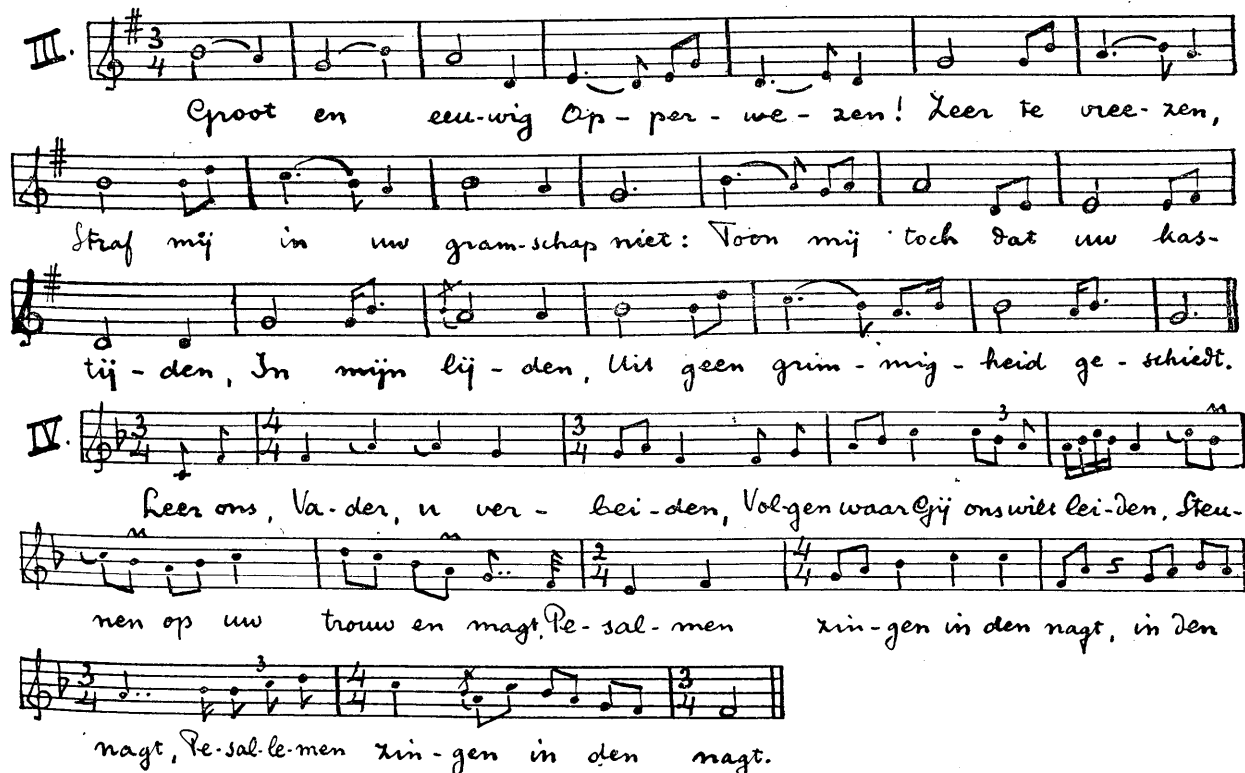 III.
Groot en eeu-wig Op-per-we-zen! Zeer te vree-zen,
Straf mij in uw gram-schap niet: Toon mij toch dat uw kas-
tij-den, In mijn lij-den, Uit geen grim-mig-heid ge-schiedt.
IV.
Leer ons, Va-der, u ver-bei-den, Vol-gen waar Gij ons wilt lei-den, Steu-
nen op uw trouw en magt, Pe-sal-men zin-gen in den nagt, in den
nagt, Pe-sal-le-men zin-gen in den nagt.